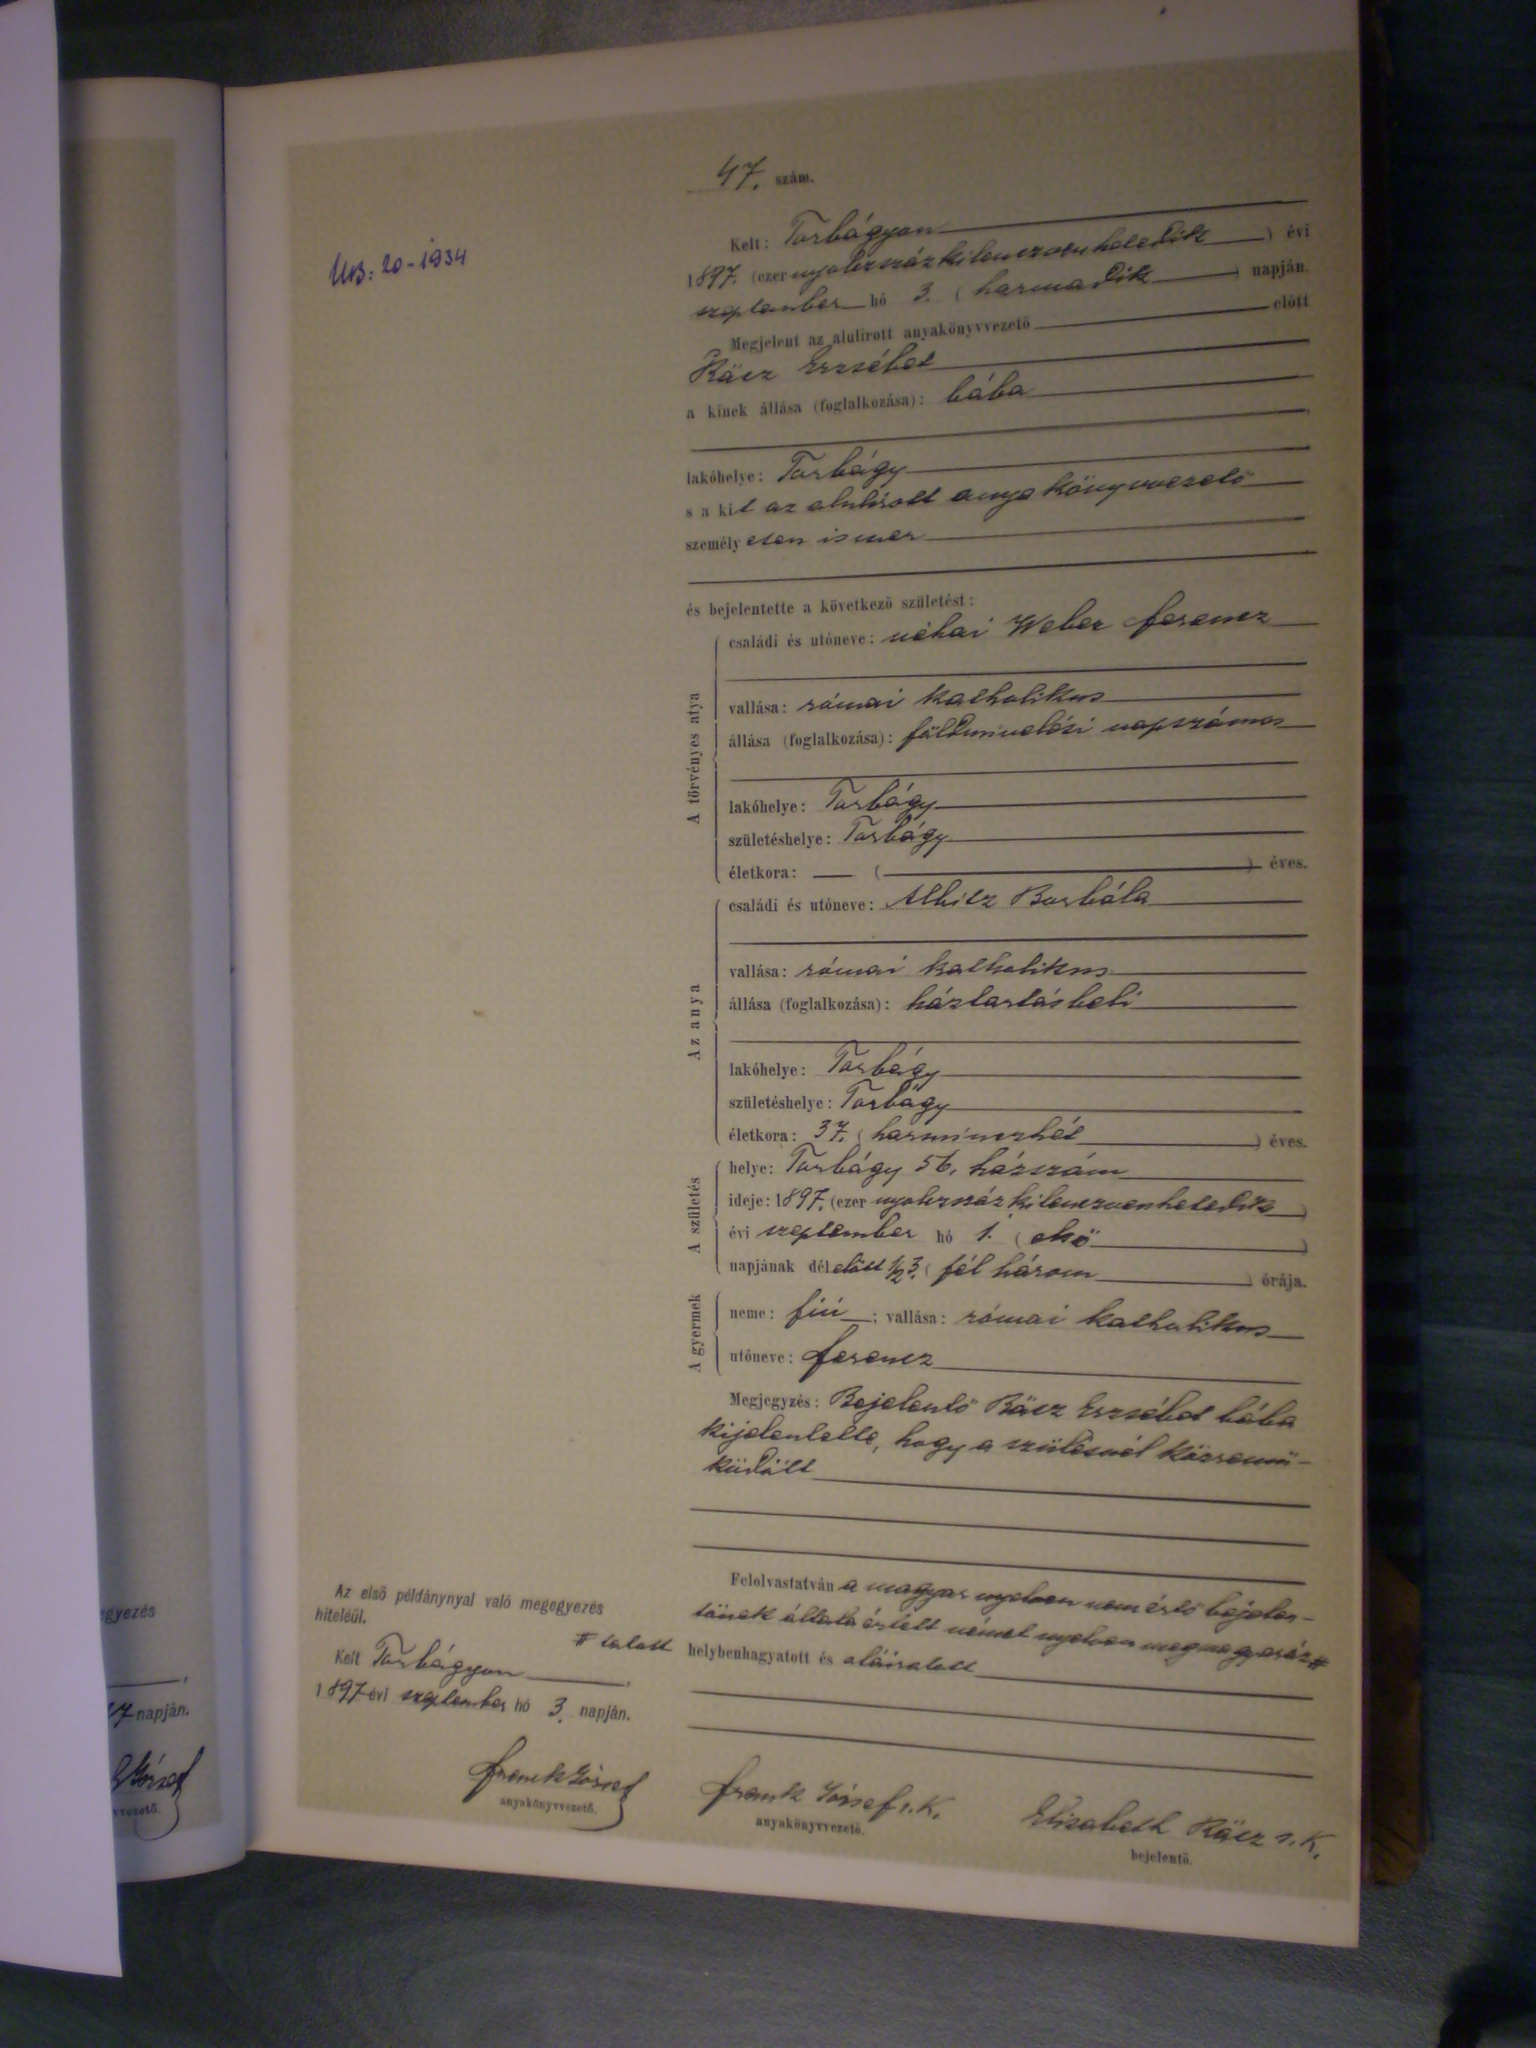 47. szám.
20-1934
Kelt: Torbágyon
1897. (ezer nyolczszázkilenczvenhetedik) évi
szeptember hó 3. (harmadik) napján.
Megjelent az alulirott anyakönyvvezető előtt
Rácz Erzsébet
a kinek állása (foglalkozása): bába
lakóhelye: Torbágy
s a kit az alulírott anyakönyvvezető
személyesen ismer
és bejelentette a következő születést:
A törvényes atya
családi és utóneve: néhai Weber Ferencz
vallása: római katholikus
állása (foglalkozása): földmivelési napszámos
lakóhelye: Torbágy
születéshelye: Torbágy
életkora: — ( ) éves.
Az anya
családi és utóneve: Borbála
vallása: római katholikus
állása (foglalkozása): háztartásbeli
lakóhelye: Torbágy
születéshelye: Torbágy
életkora: 37. (harminczhét) éves.
A születés
helye: Torbágy 56. házszám
ideje: 1897. (ezer nyolczszázkilenczvenhetedik)
évi szeptember hó 1. (első)
napjának délelőtt 1/2 3. (fél három) órája.
A gyermek
neme: fiú; vallása: római katholikus
utóneve: Ferencz
Megjegyzés: Bejelentő Rácz Erzsébet bába
kijelentette, hogy a szülésnél közremű-
ködött
Felolvastatván a magyar nyelven nem értő bejelen-
tőnek általa értett német nyelven megmagyaráz #
# tatott
helybenhagyatott és aláiratott
Az első példánynyal való megegyezés
hiteléül.
Kelt Torbágyon
1897 évi szeptember hó 3. napján.
Frank József
anyakönyvvezető.
Frank József s. k.
anyakönyvvezető.
Elisabeth Rácz s. k.
bejelentő.
egyezés
7 napján.
József
vvezető.